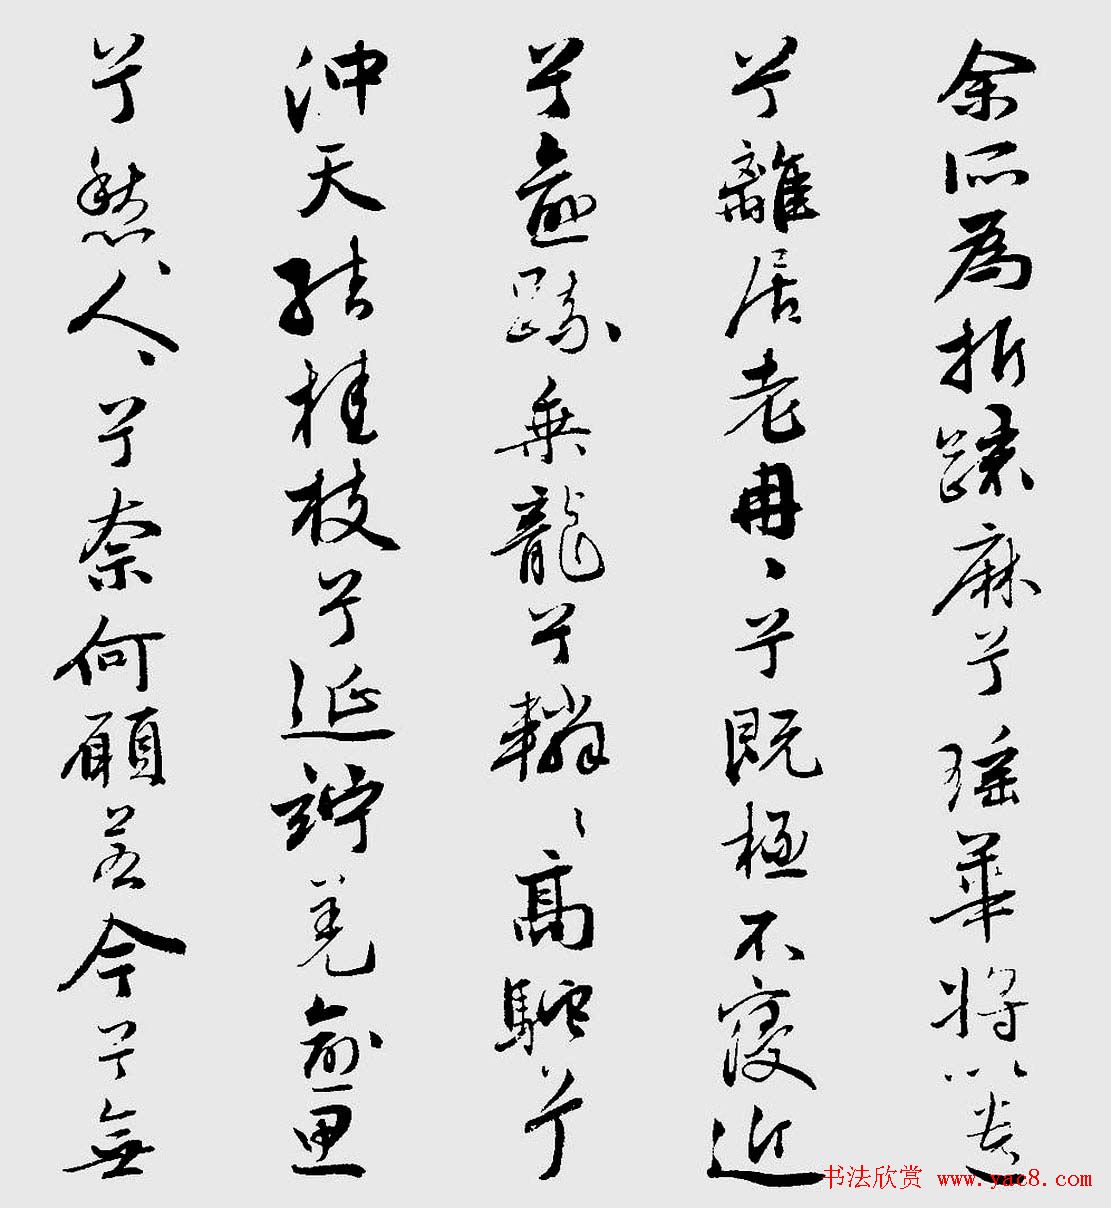 余所為折踈麻兮瑶華将以遗
兮離居老冉、兮既極不寖近
兮逾踈乗龍兮轔〻高駝兮
沖天結桂枝兮延竚羌俞思
兮愁人、兮奈何願若今兮無
书法欣赏 www.yac8.com